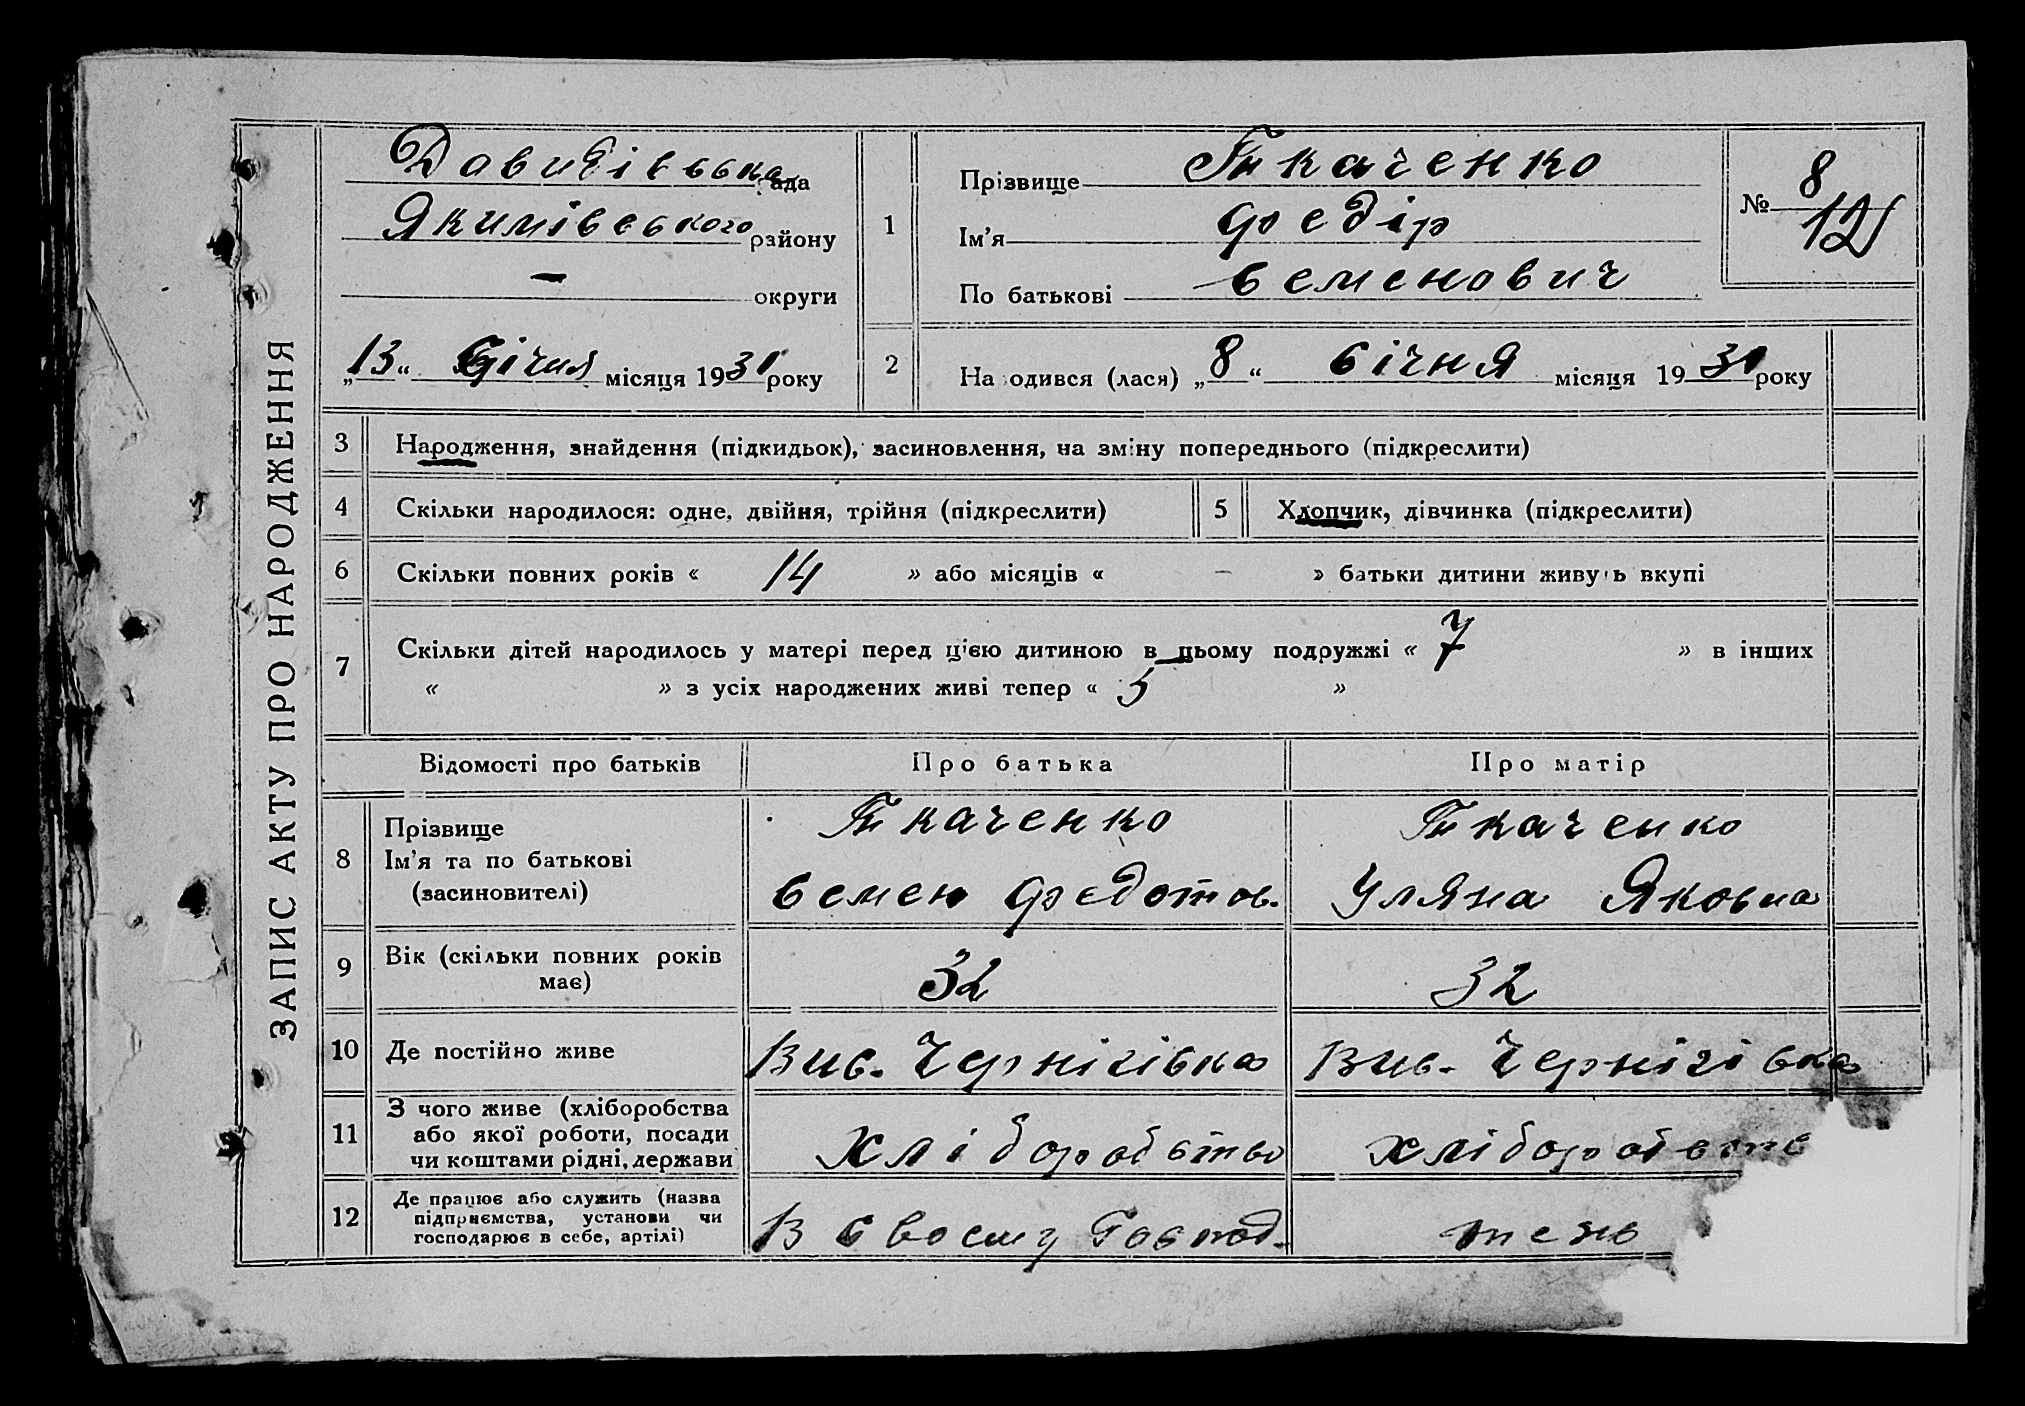 ЗАПИС АКТУ ПРО НАРОДЖЕННЯ
Давидівська рада
Якимівського району
— округи
„13“ Січня місяця 1931 року
1
Прізвище Ткаченко
Ім'я Федір
По батькові Семенович
№ 8
12
2
На одився (лася) „8“ Січня місяця 1931 року
3 Народження, знайдення (підкидьок), засиновлення, на зміну попереднього (підкреслити)
4 Скільки народилося: одне, двійня, трійня (підкреслити)
5 Хлопчик, дівчинка (підкреслити)
6 Скільки повних років « 14 » або місяців « — » батьки дитини живуть вкупі
7 Скільки дітей народилось у матері перед цією дитиною в цьому подружжі « 7 » в інших
« » з усіх народжених живі тепер « 5 »
Відомості про батьків Про батька Про матір
8 Прізвище
Ім'я та по батькові
(засиновителі)
Ткаченко
Семен Федотов.
Ткаченко
Уляна Яковна
9 Вік (скільки повних років
має)
32
32
10 Де постійно живе
Вис. Чернігівка
Вис. Чернігівка
11 З чого живе (хліборобства
або якої роботи, посади
чи коштами рідні, держави
хліборобство
хліборобств
12 Де працює або служить (назва
підприємства, установи чи
господарює в себе, артілі)
В своєму Господ.
теж